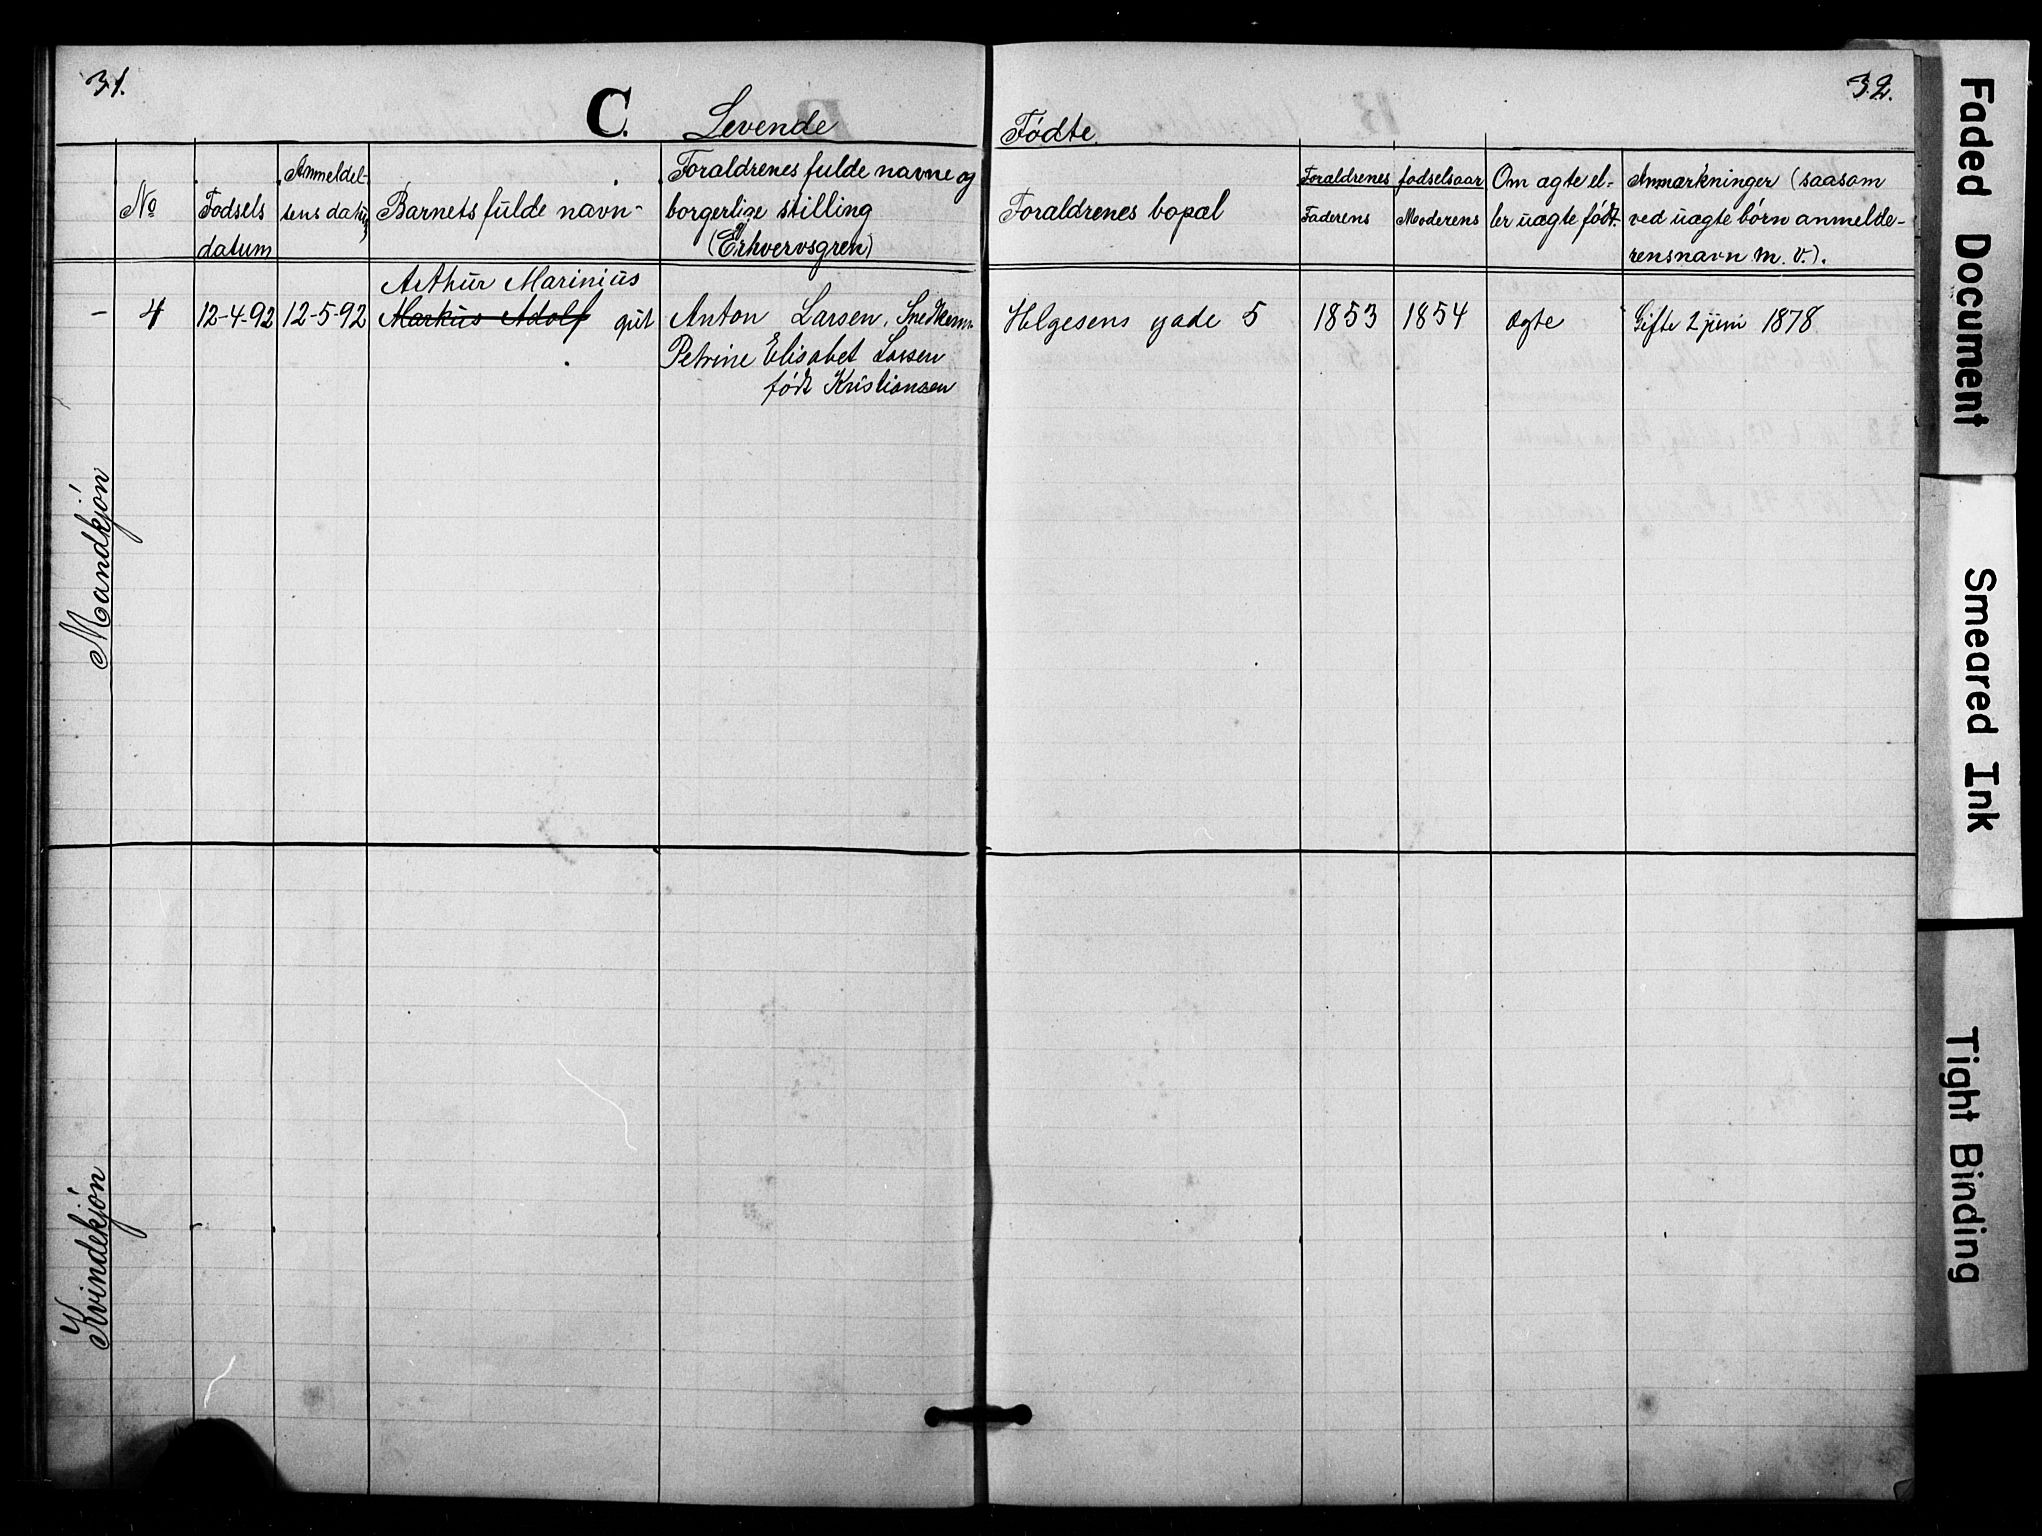 31.
C. Levende
Fødte.
32.
No
Fødsels datum
Anmeldel-
sens datum
Barnets fulde navn-
Forældrenes fulde navne og
borgerlige stilling
(Erhvervsgren)
Forældrenes bopæl
Forældrenes fødselsaar
Faderens
Moderens
Om ægte el-
ler uægte født.
Anmærkninger (saasom
ved uægte børn anmelde-
rens navn m. v.).
Arthur Marinius
- 4 12-4-92 12-5-92 Markus Adolf gut Anton Larsen, Snedkersv. Helgesens gade 5 1853 1854 ægte Gifte 2 juni 1878
Petrine Elisabet Larsen
født Kristiansen
Mandkjøn
Kvindekjøn
Faded Document
Smeared Ink
Tight Binding